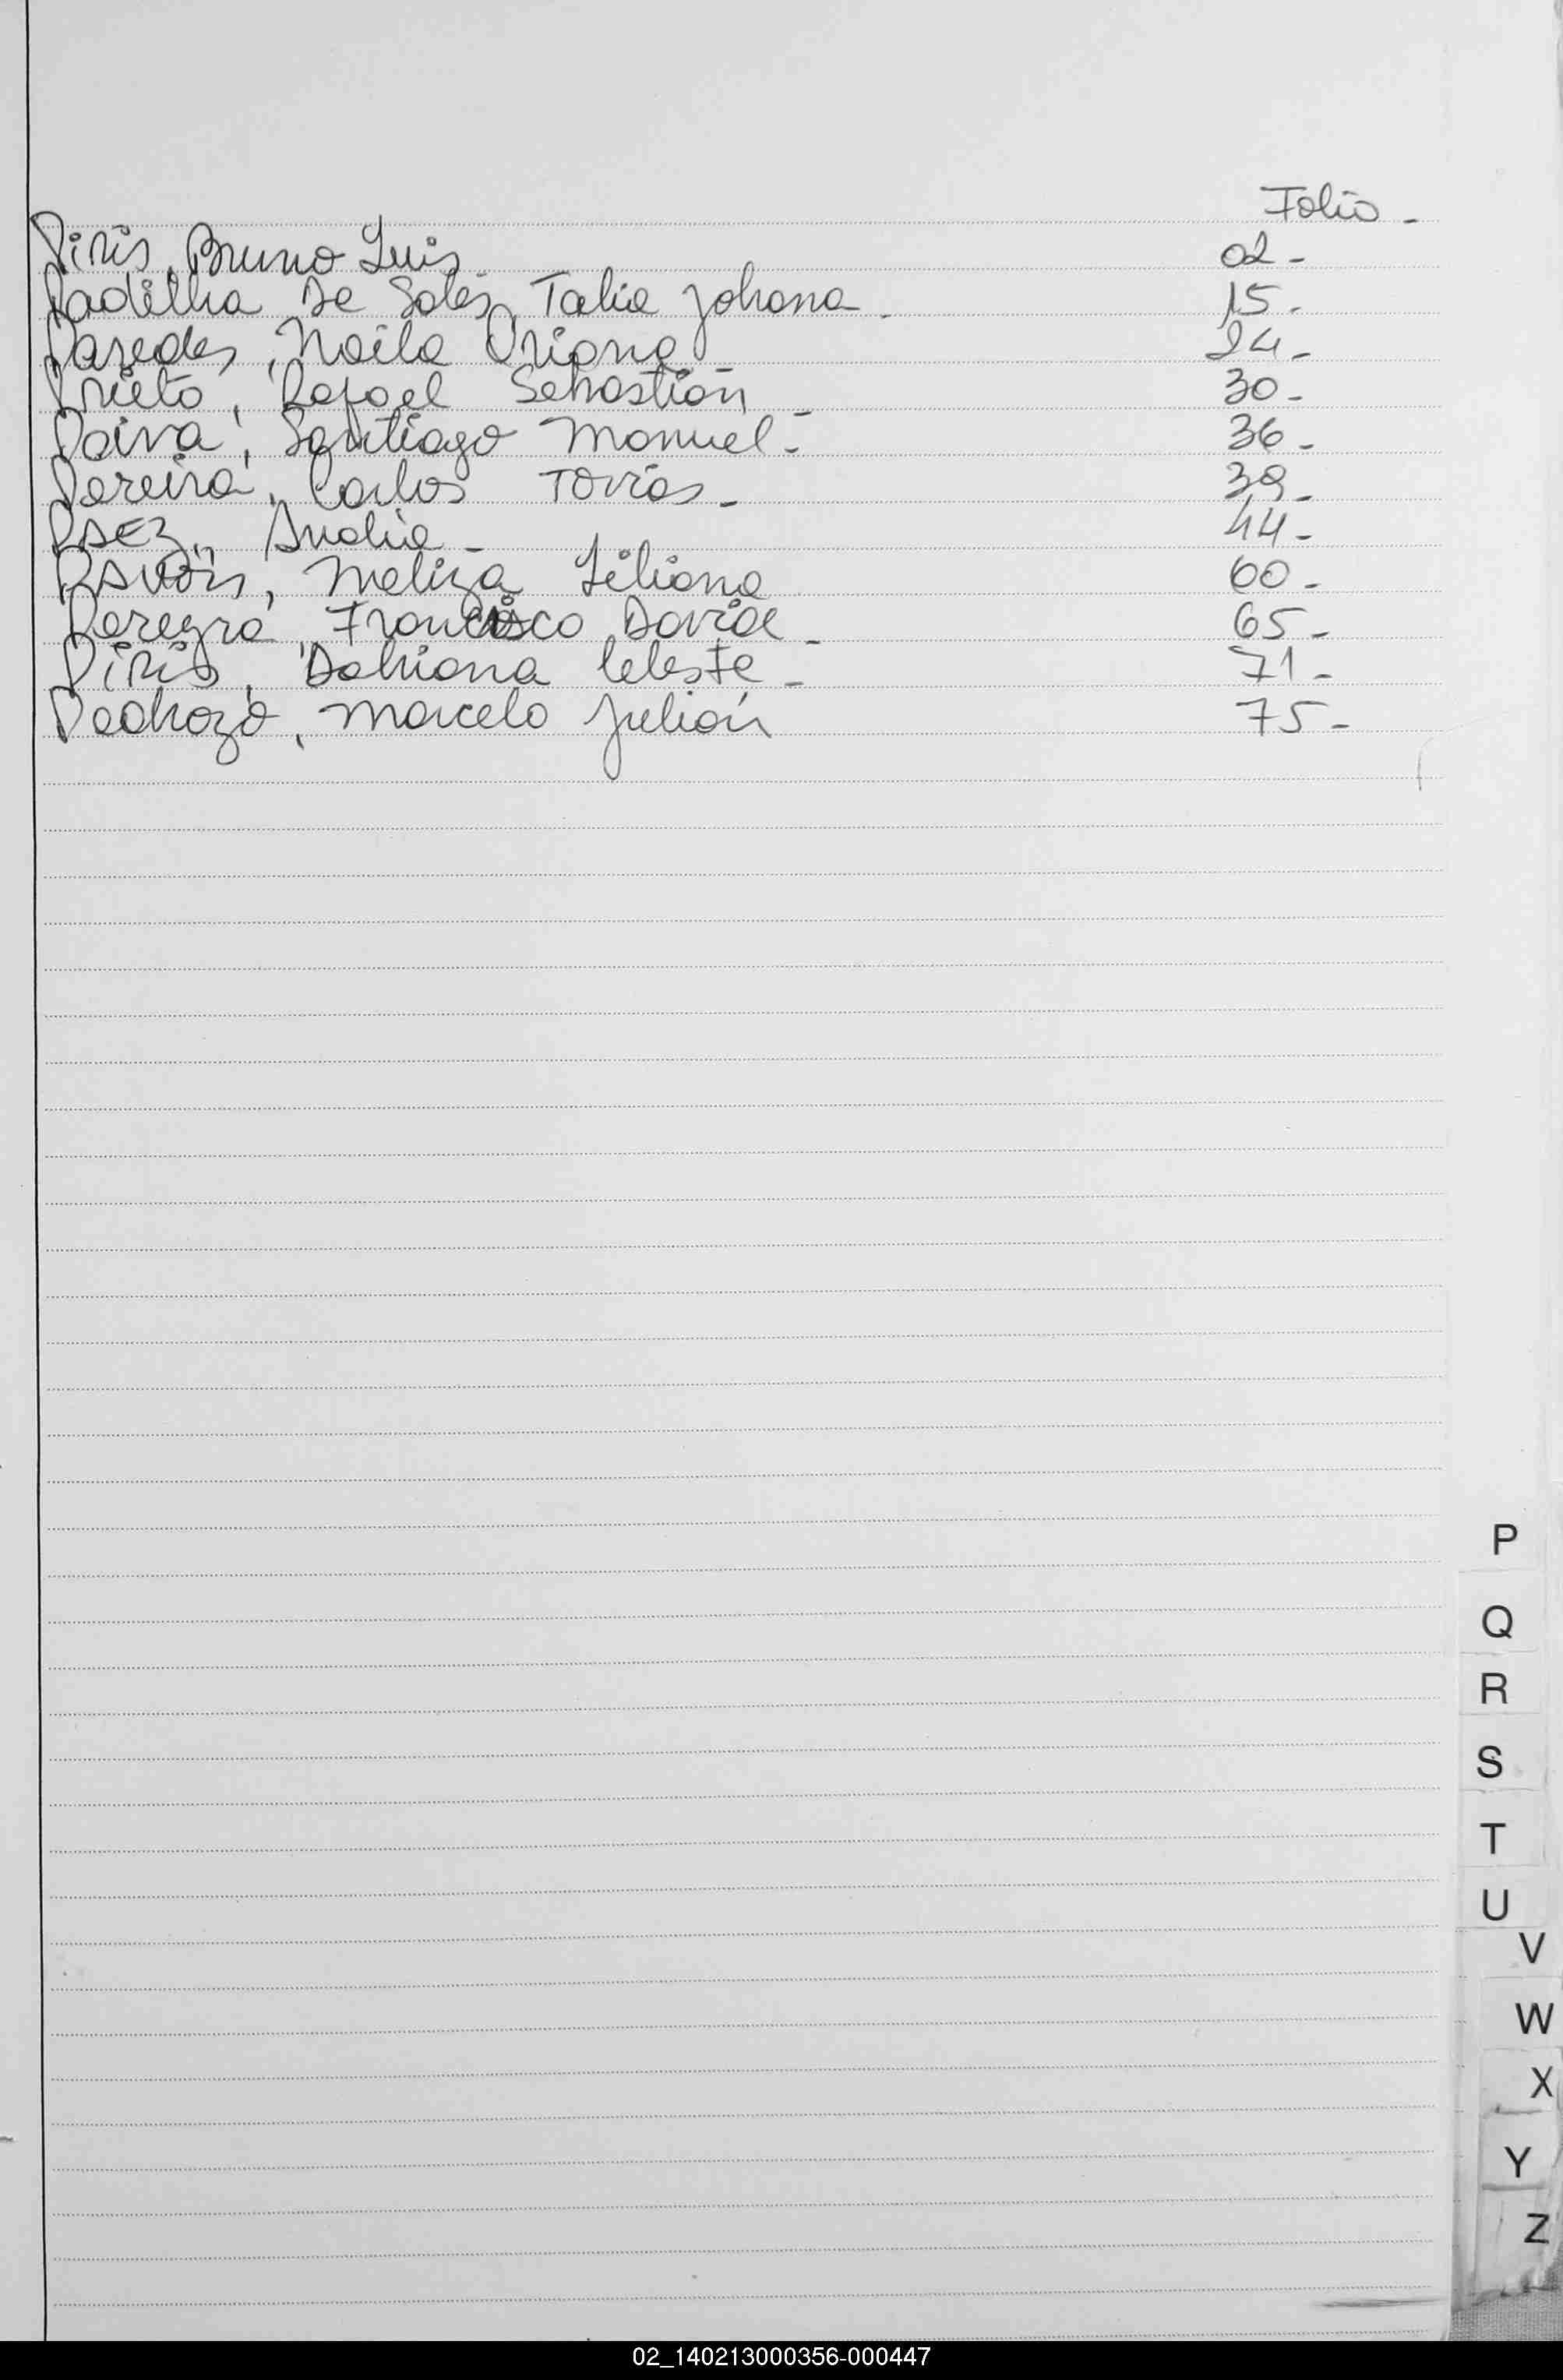 Folio -
Piris, Bruno Luis - 02 -
Padilha De Sales, Talia Johana - 15 -
Paredes, Naila Oriana - 24 -
Prieto, Rafael Sebastián - 30 -
Paiva, Santiago Manuel - 36 -
Pereira, Carlos Tobías - 39 -
PAEZ, Analia - 44 -
Meliza Liliana 60 -
Pereyra, Francisco David - 65 -
Piris, Dahiana Celeste - 71 -
Pedrozo, Marcelo Julián 75 -
P
Q
R
S
T
U
V
W
X
Y
Z
02_140213000356-000447